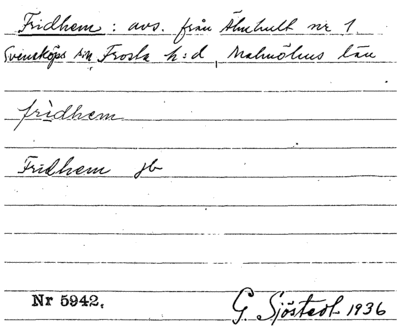 Fridhem : avs. från Älmhult nr 1
Svensköps sn Frosta h:d, Malmöhus län
frìdhem
Fridhem jb
Nr 5942.
G. Sjöstedt 1936